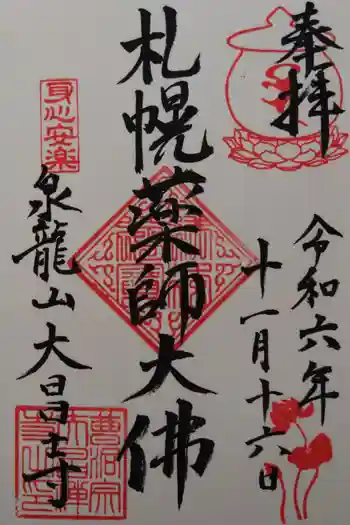 奉拝
令和六年
十一月十六日
札幌薬師大佛
身心安楽
泉龍山大昌寺